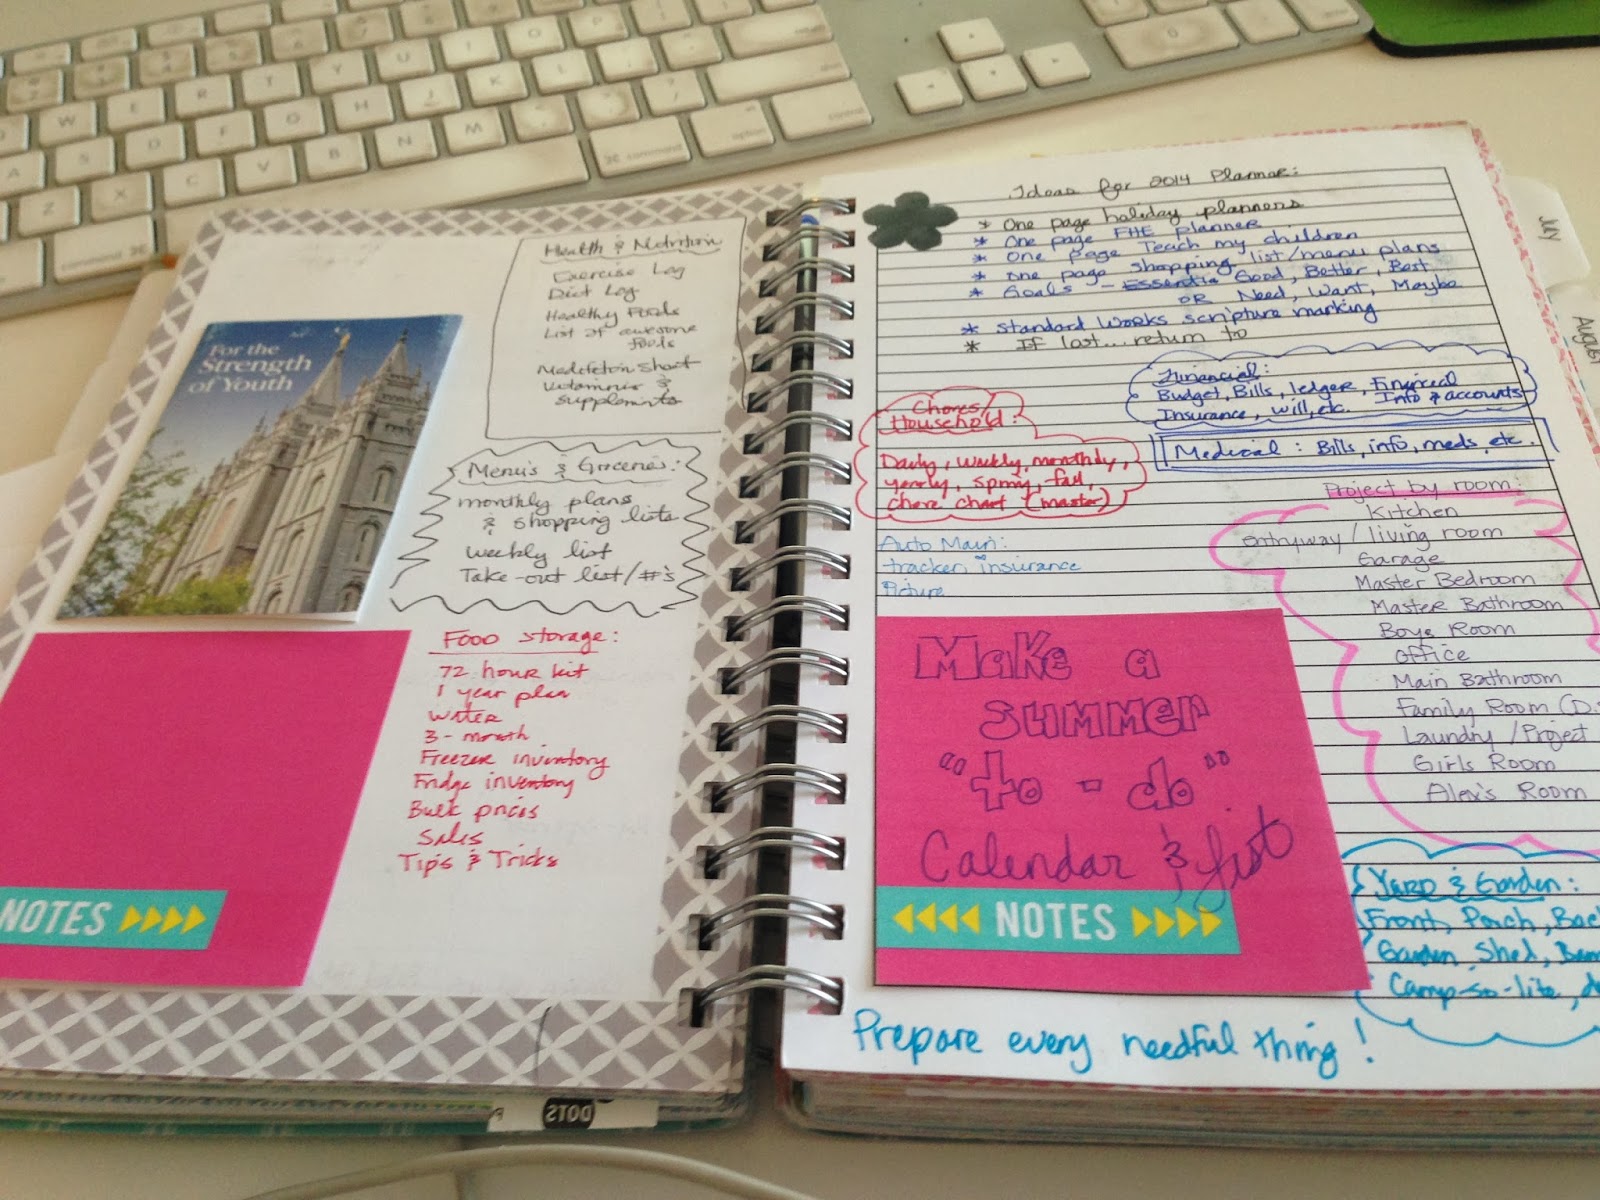 For the
Strength
of Youth
Health & Nutrition
Exercise Log
Diet Log
Healthy Foods
List of awesome
foods
Medifeton Short
Vitamins &
supplements
Menu's & Groceries:
monthly plans
& shopping lists
Weekly list
Take-out list/#'s
Food storage:
72 hour kit
1 year plan
Water
3-month
Freezer inventory
Fridge inventory
Bulk prices
Sales
Tips & Tricks
NOTES
DOTS
Ideas for 2014 Planner:
* One page holiday planners
* One page FHE planner
* One page Teach my children
* One page shopping list/menu plans
* Goals - Essentia Good, Better, Best
OR Need, Want, Maybe
* Standard Works scripture marking
* If lost... return to
Financial:
Budget, Bills, ledger, Financial
Info & accounts
Insurance, will, etc.
Medical: Bills, info, meds, etc.
Chores/
Household:
Daily, weekly, monthly,
yearly, spring, fall,
chore chart (master)
Auto Main:
tracker insurance
Picture
Project by room:
Kitchen
entryway/living room
Garage
Master Bedroom
Master Bathroom
Boys Room
Office
Main Bathroom
Family Room (D.
Laundry/Project
Girls Room
Alex's Room
Make a
summer
"to-do"
Calendar & list
NOTES
Yard & Garden:
Front, Porch, Back
Garden, Shed,
Camp-so-lite,
Prepare every needful thing!
July
August
W E R T Y U I O P
A S D F G H J K L
Z X C V B N M
command
command
option
control